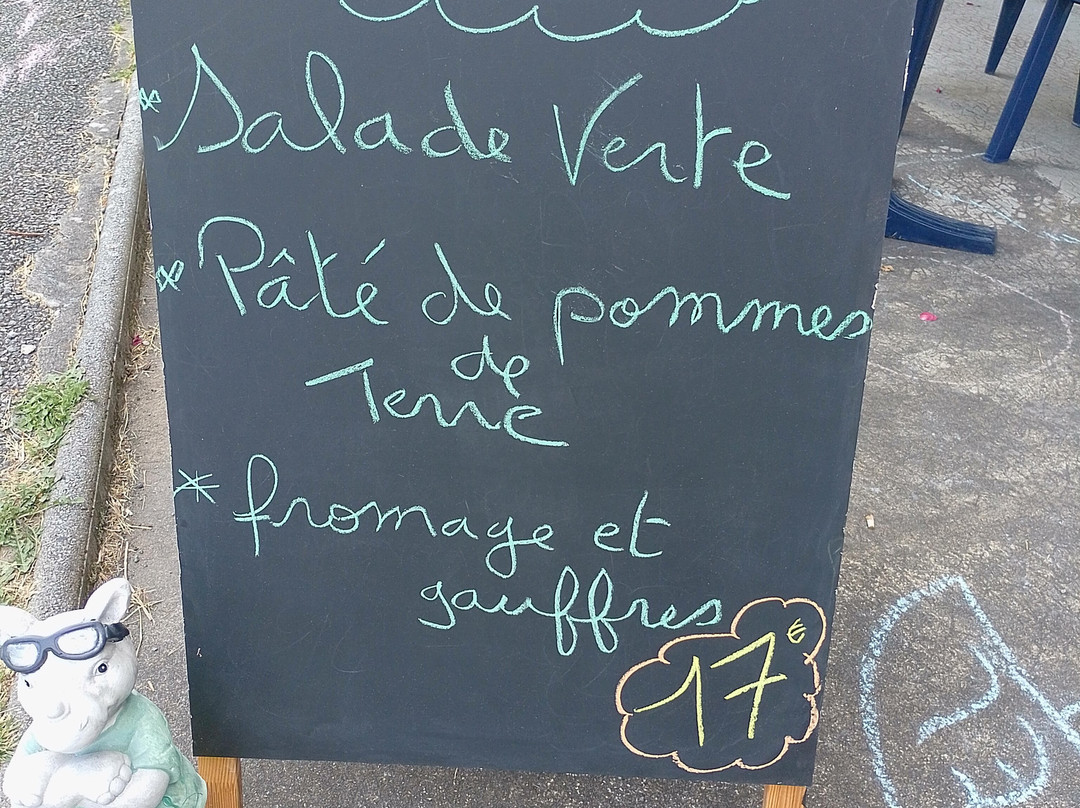 * Salade Verte
* Pâté de pommes
de
Terre
* fromage et
gauffres
17€